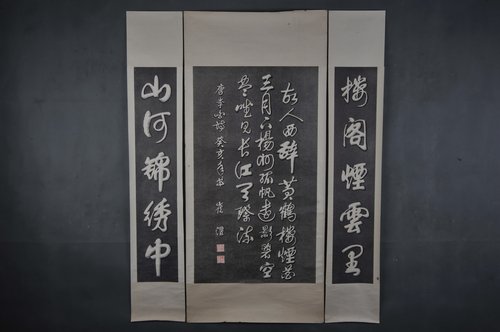 楼阁煙雲里
故人西辭黄鶴楼煙花
三月下揚州孤帆遠影碧空
盡唯見長江天際流
唐李白詩 癸亥年 崔
山河锦绣中